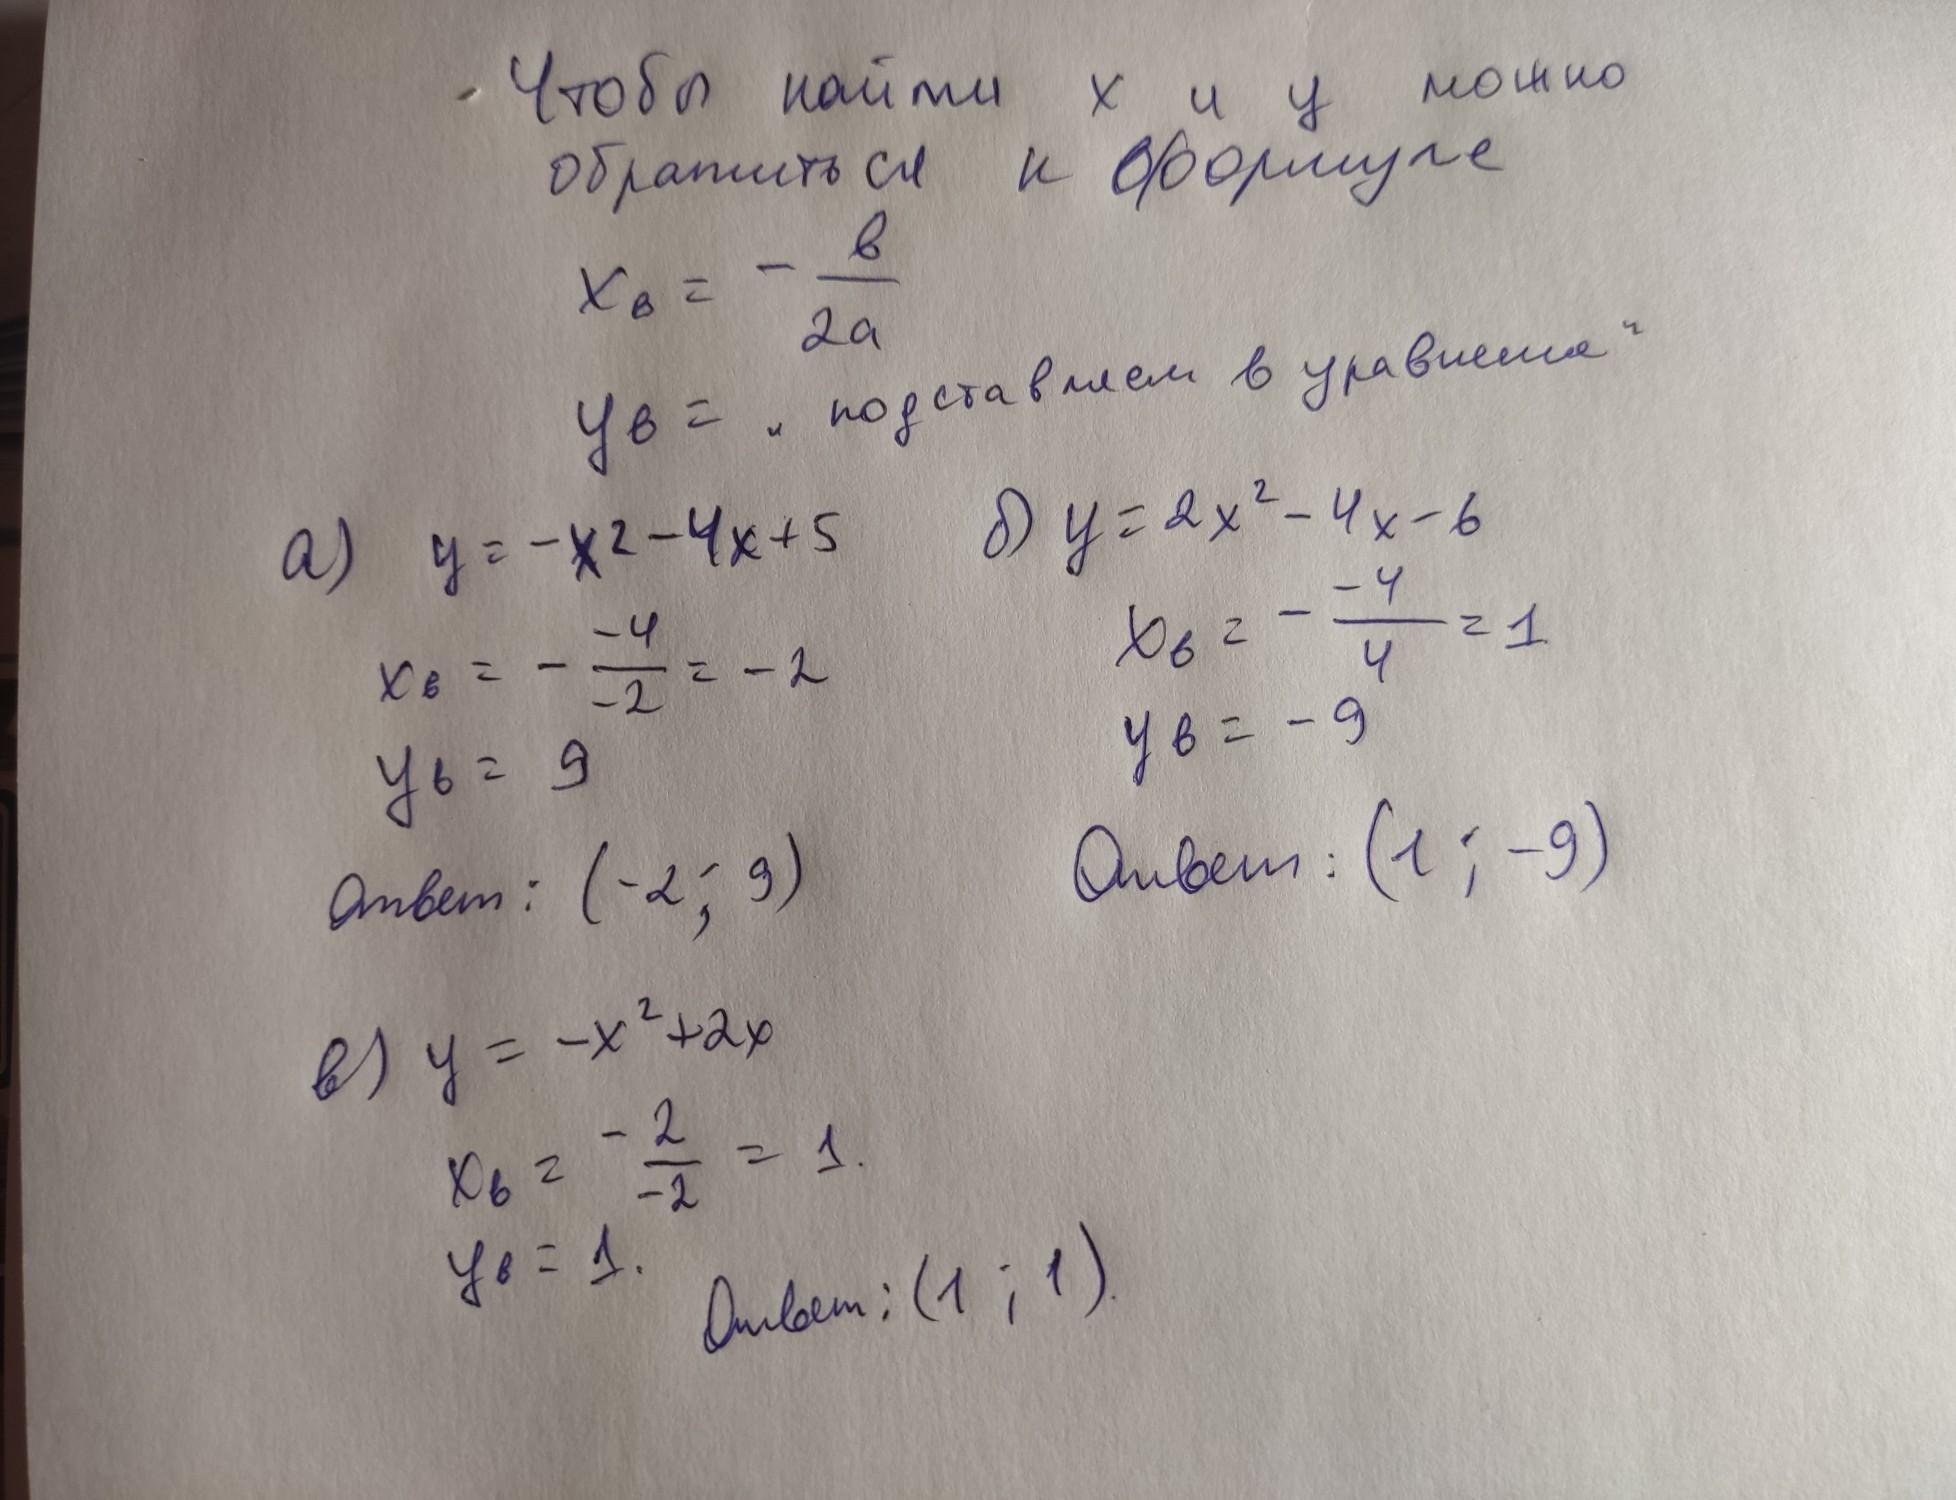 Чтобы найти x и y можно
обратиться к формуле
xв = - в/2a
yв = „подставляем в уравнение"
а) y = -x2-4x+5
xв = - -4/-2 = -2
yв = 9
Ответ: (-2; 9)
б) y=2x²-4x-6
xв = - -4/4 = 1
yв = -9
Ответ: (1; -9)
в) y = -x²+2x
xв = - 2/-2 = 1.
yв = 1.
Ответ: (1; 1).